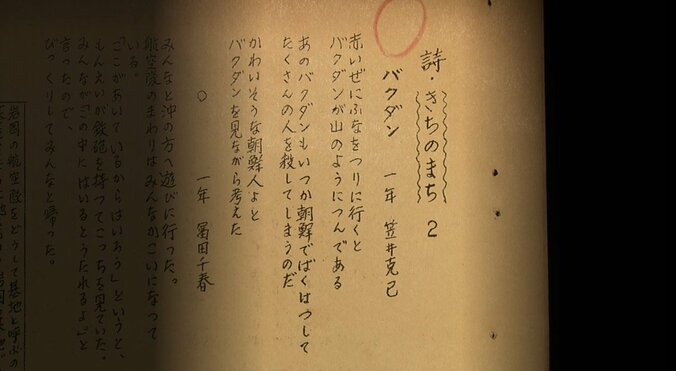 詩・きちのまち 2
バクダン 一年 笠井克己
赤いぜにふなをつりに行くと
バクダンが山のようにつんである
あのバクダンもいつか朝鮮でばくはつして
たくさんの人を殺してしまうのだ
かわいそうな朝鮮人よと
バクダンを見ながら考えた
○ 一年 冨田千春
みんなと沖の方へ遊びに行った。
航空隊のまわりはみんなかこいになって
いる。
「ここがあいているからはいろう」というと、
もんえいが鉄砲を持ってこっちを見ていた。
みんなが「この中にはいるとうたれるよ」と
言ったので、
びっくりしてみんなと帰った。
岩国の航空隊をどうして基地と呼ぶの